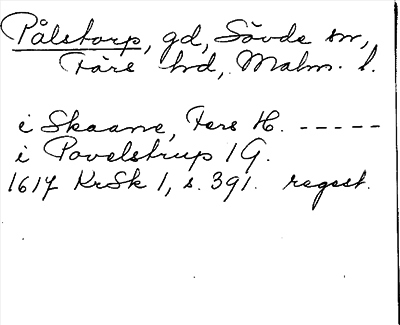 Pålstorp, gd, Sövde sn,
Färs hd, Malm. l.
i Skaane, Fers H. -----
i Povelstrup 1 G.
1617 KrSk 1, s. 391. regest.